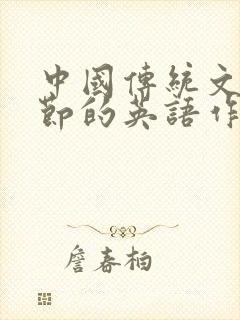 中國傳統文
節的英語作
詹春柏